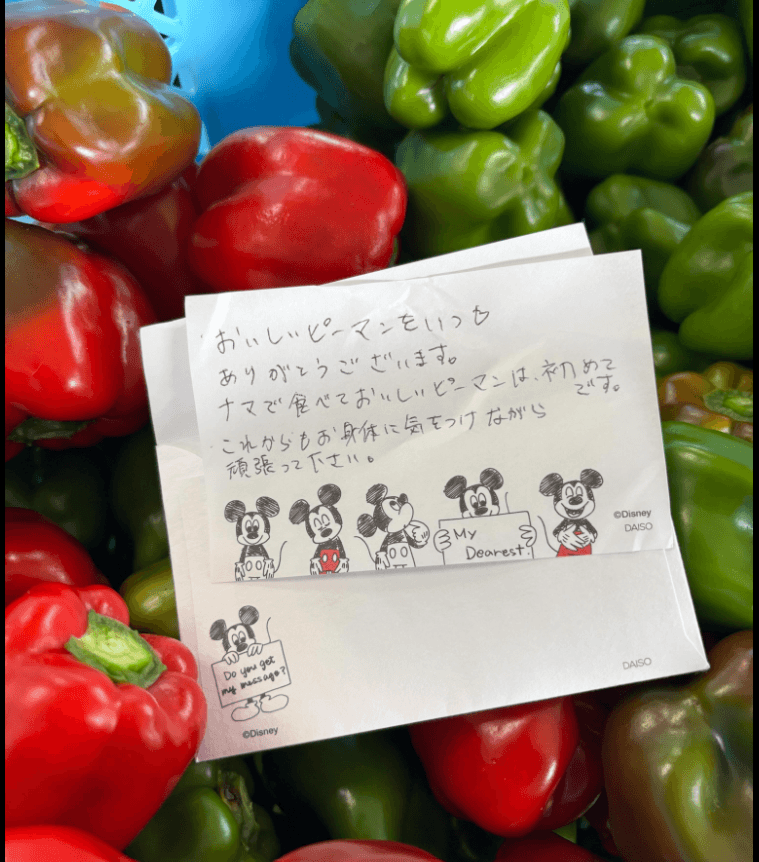 おいしいピーマンをいつも
ありがとうございます。
ナマで食べておいしいピーマンは、初めて
です。
これからもお身体に気をつけながら
頑張って下さい。
My
Dearest.
©Disney
DAISO
Do you get
my message?
©Disney
DAISO